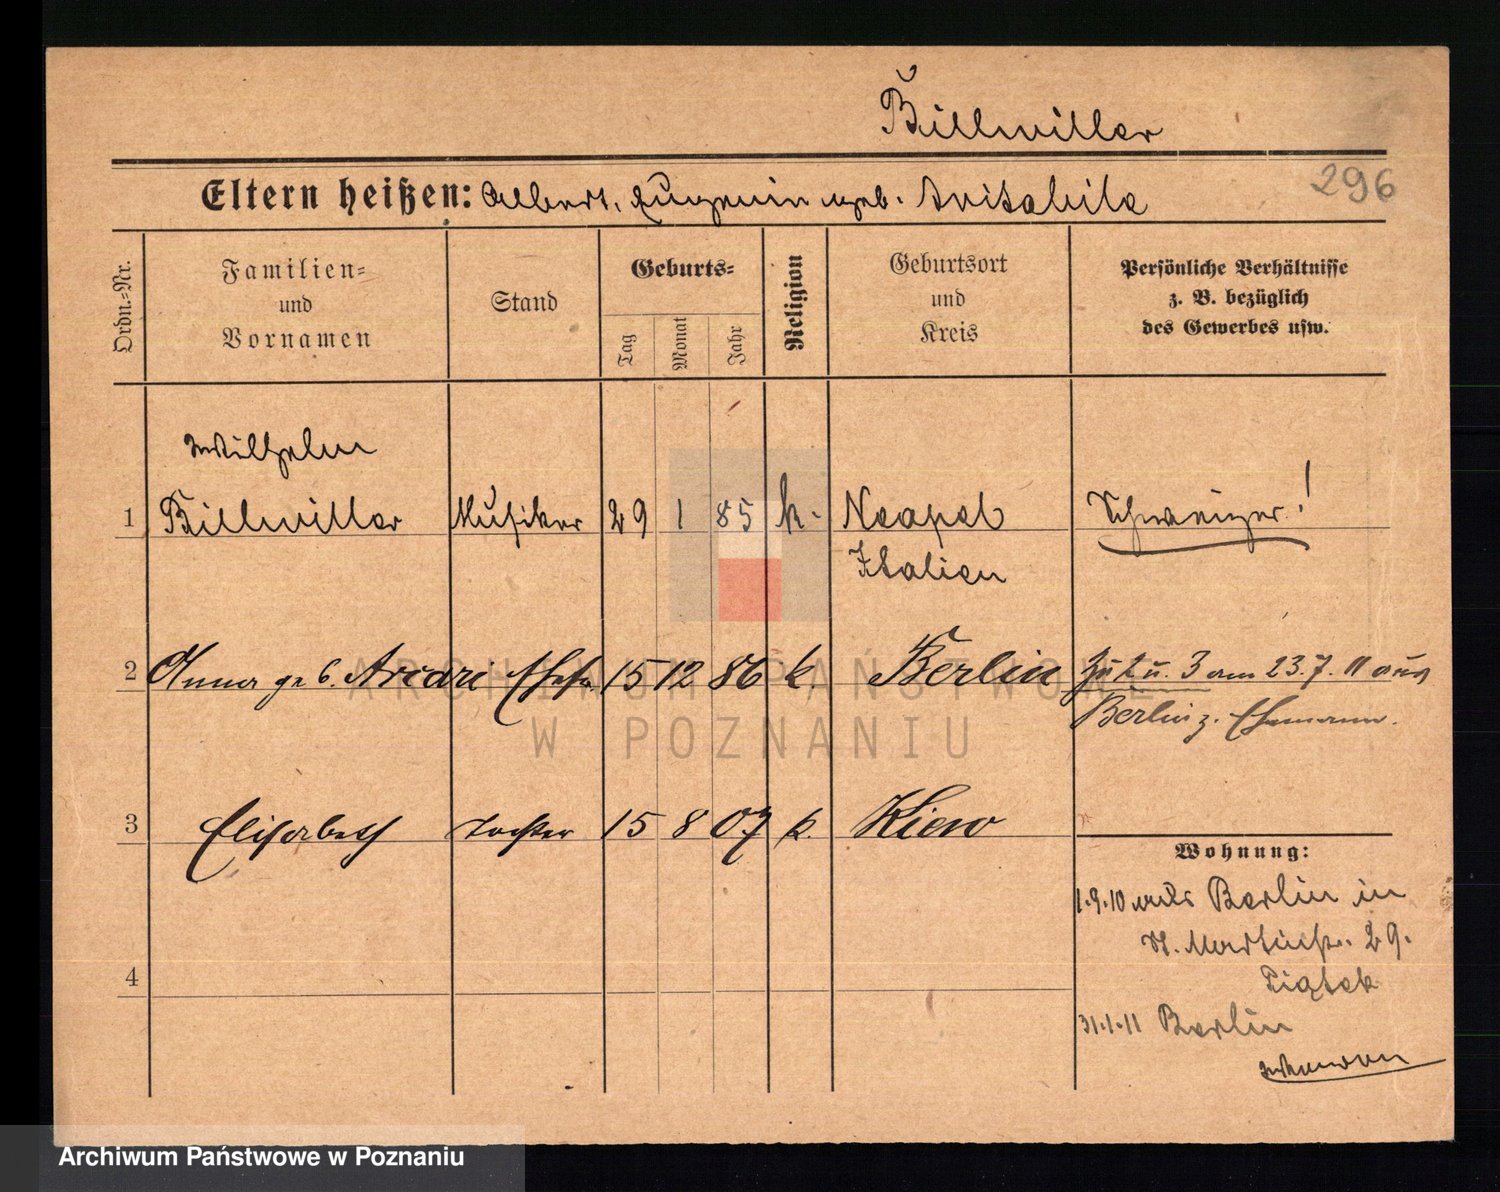 Billwiller
Eltern heißen: Albert, Eugenia geb. Avitabile
296
Ordn.=Nr.
Familien=
und
Vornamen
Stand
Geburts=
Tag
Monat
Jahr
Religion
Geburtsort
und
Kreis
Persönliche Verhältnisse
z. B. bezüglich
des Gewerbes usw.
Wilhelm
1 Billwiller Musiker 29 1 85 k. Neapel Schweizer!
Italien
2 Anna geb. Arcari Ehefr. 15 12 86 k. Berlin Zu 2 u. 3 am 23.7.11 aus
Berlin z. Ehemann.
3 Elisabeth Tochter 15 8 07 k. Kiew
Wohnung:
1.9.10 aus Berlin in
St. Martinstr. 29.
Piątek
4
31.1.11 Berlin
ARCHIWUM PAŃSTWOWE
W POZNANIU
Archiwum Państwowe w Poznaniu